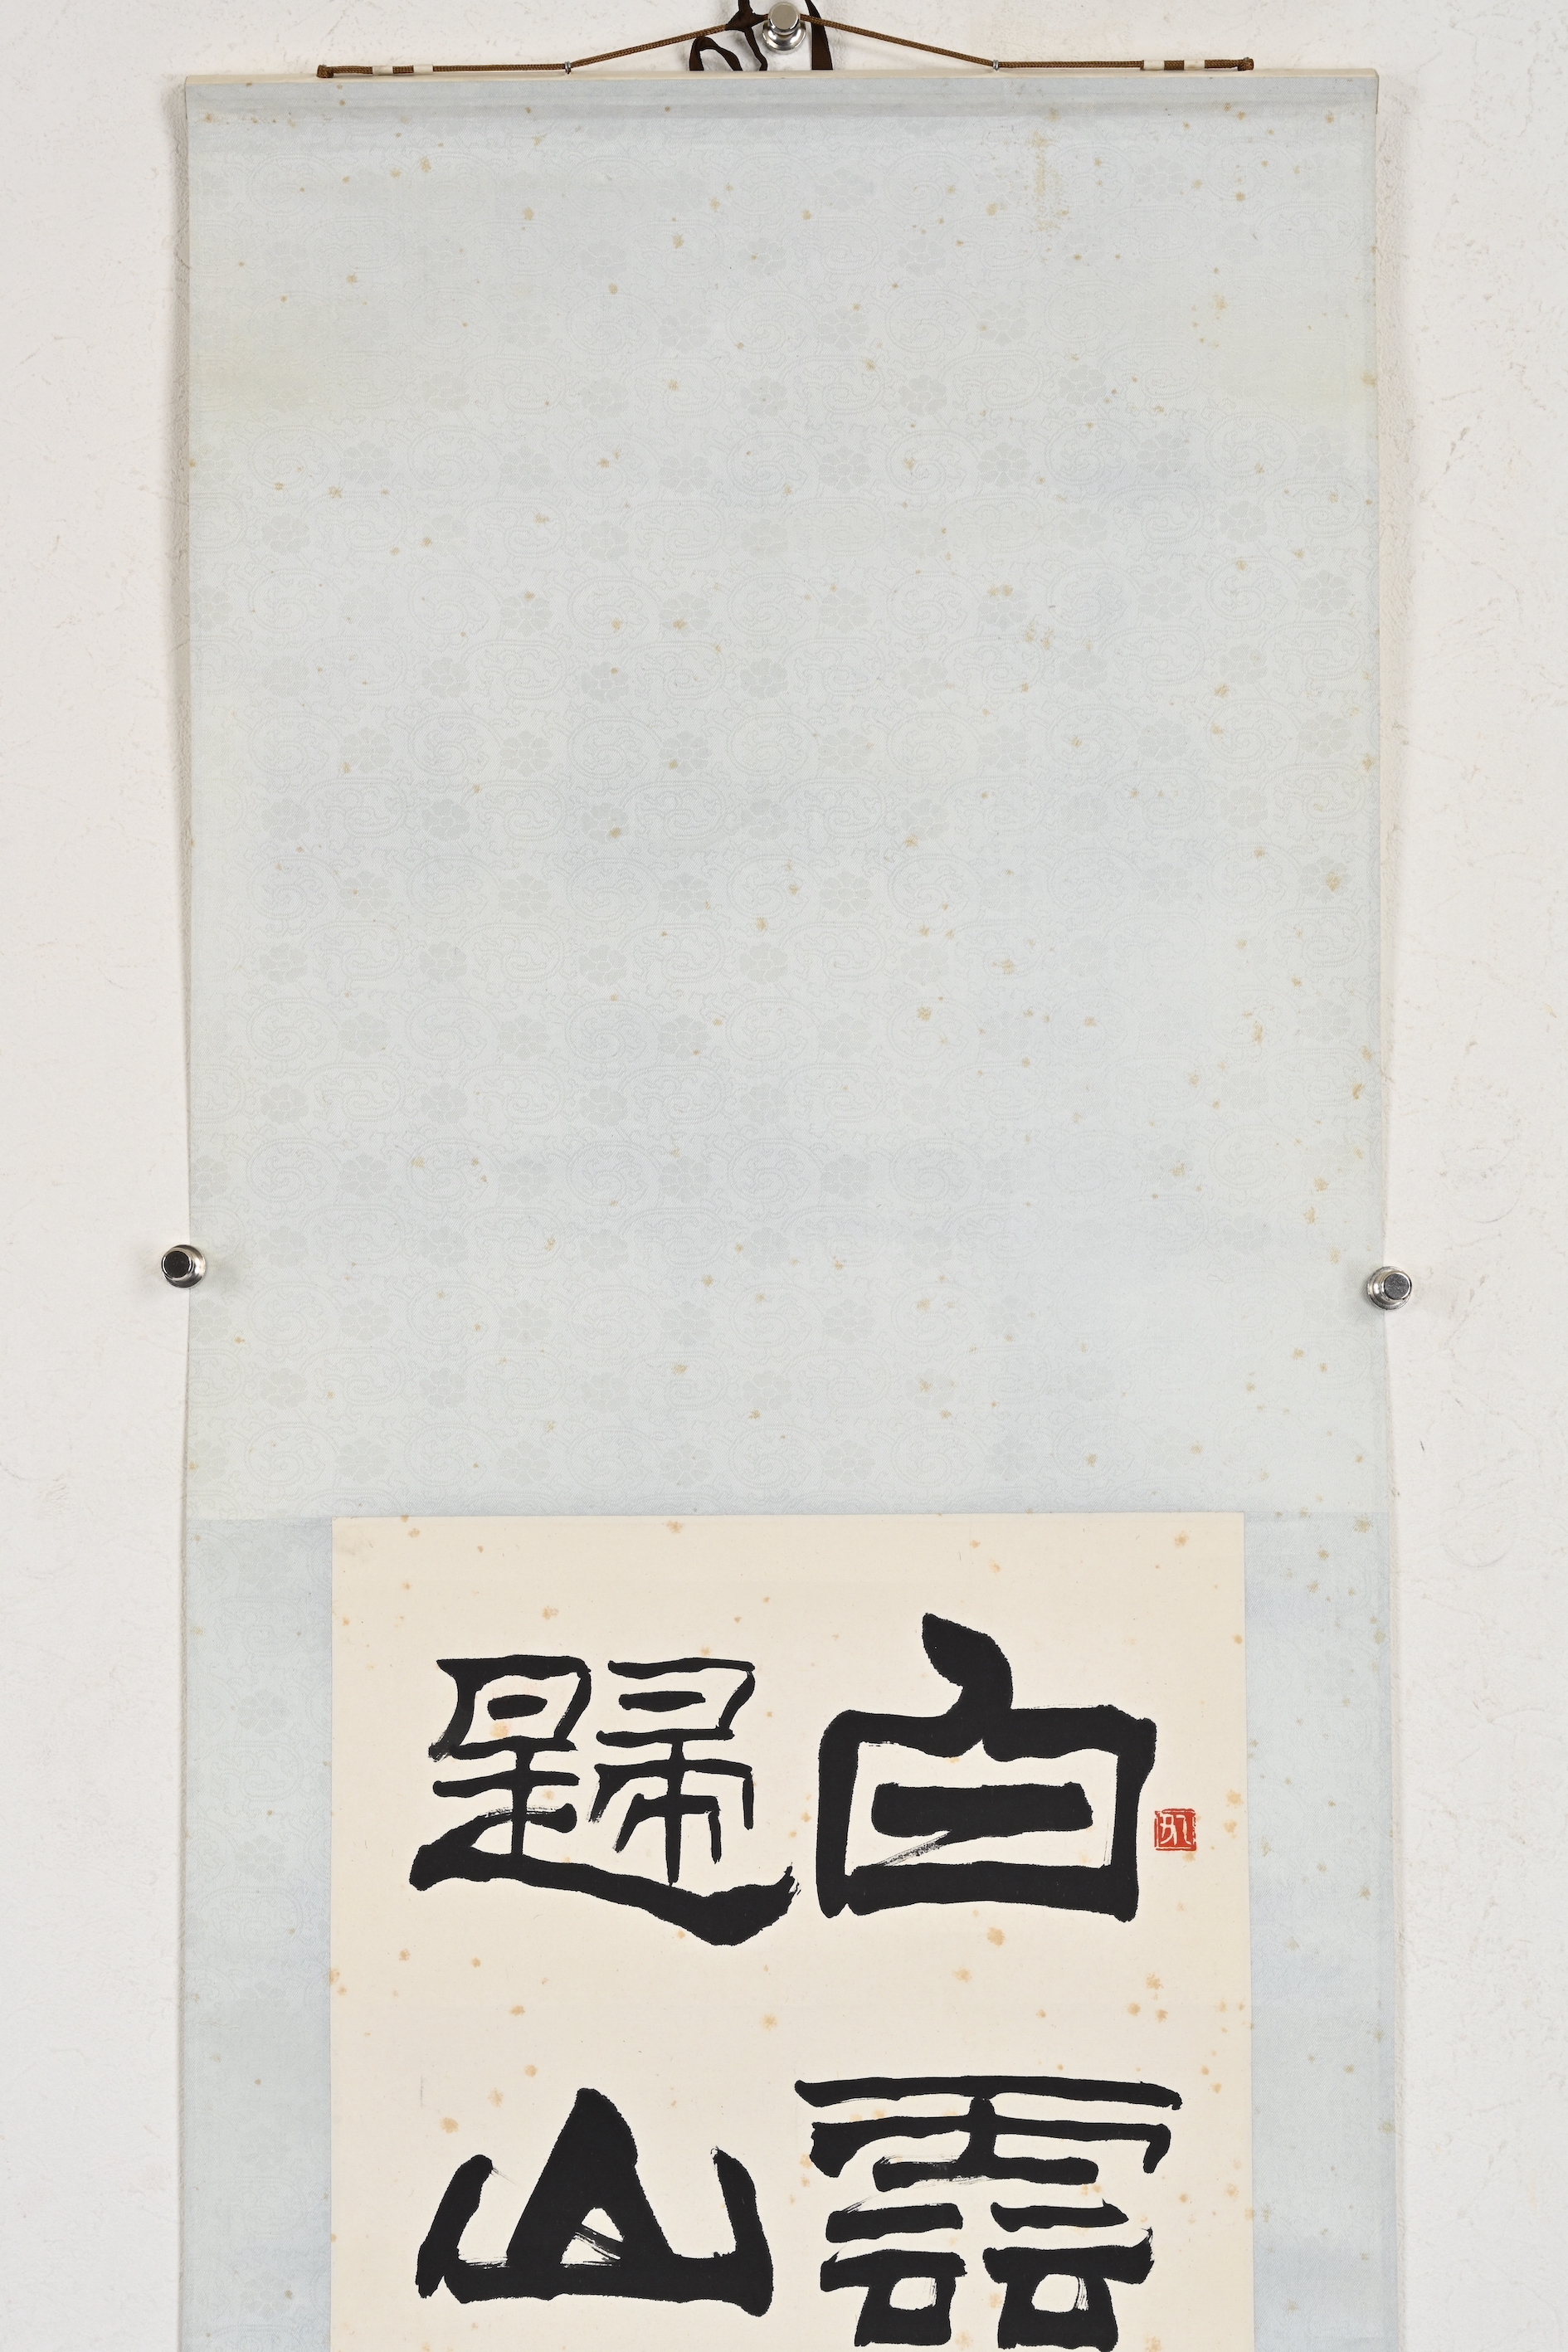 白雲
歸山